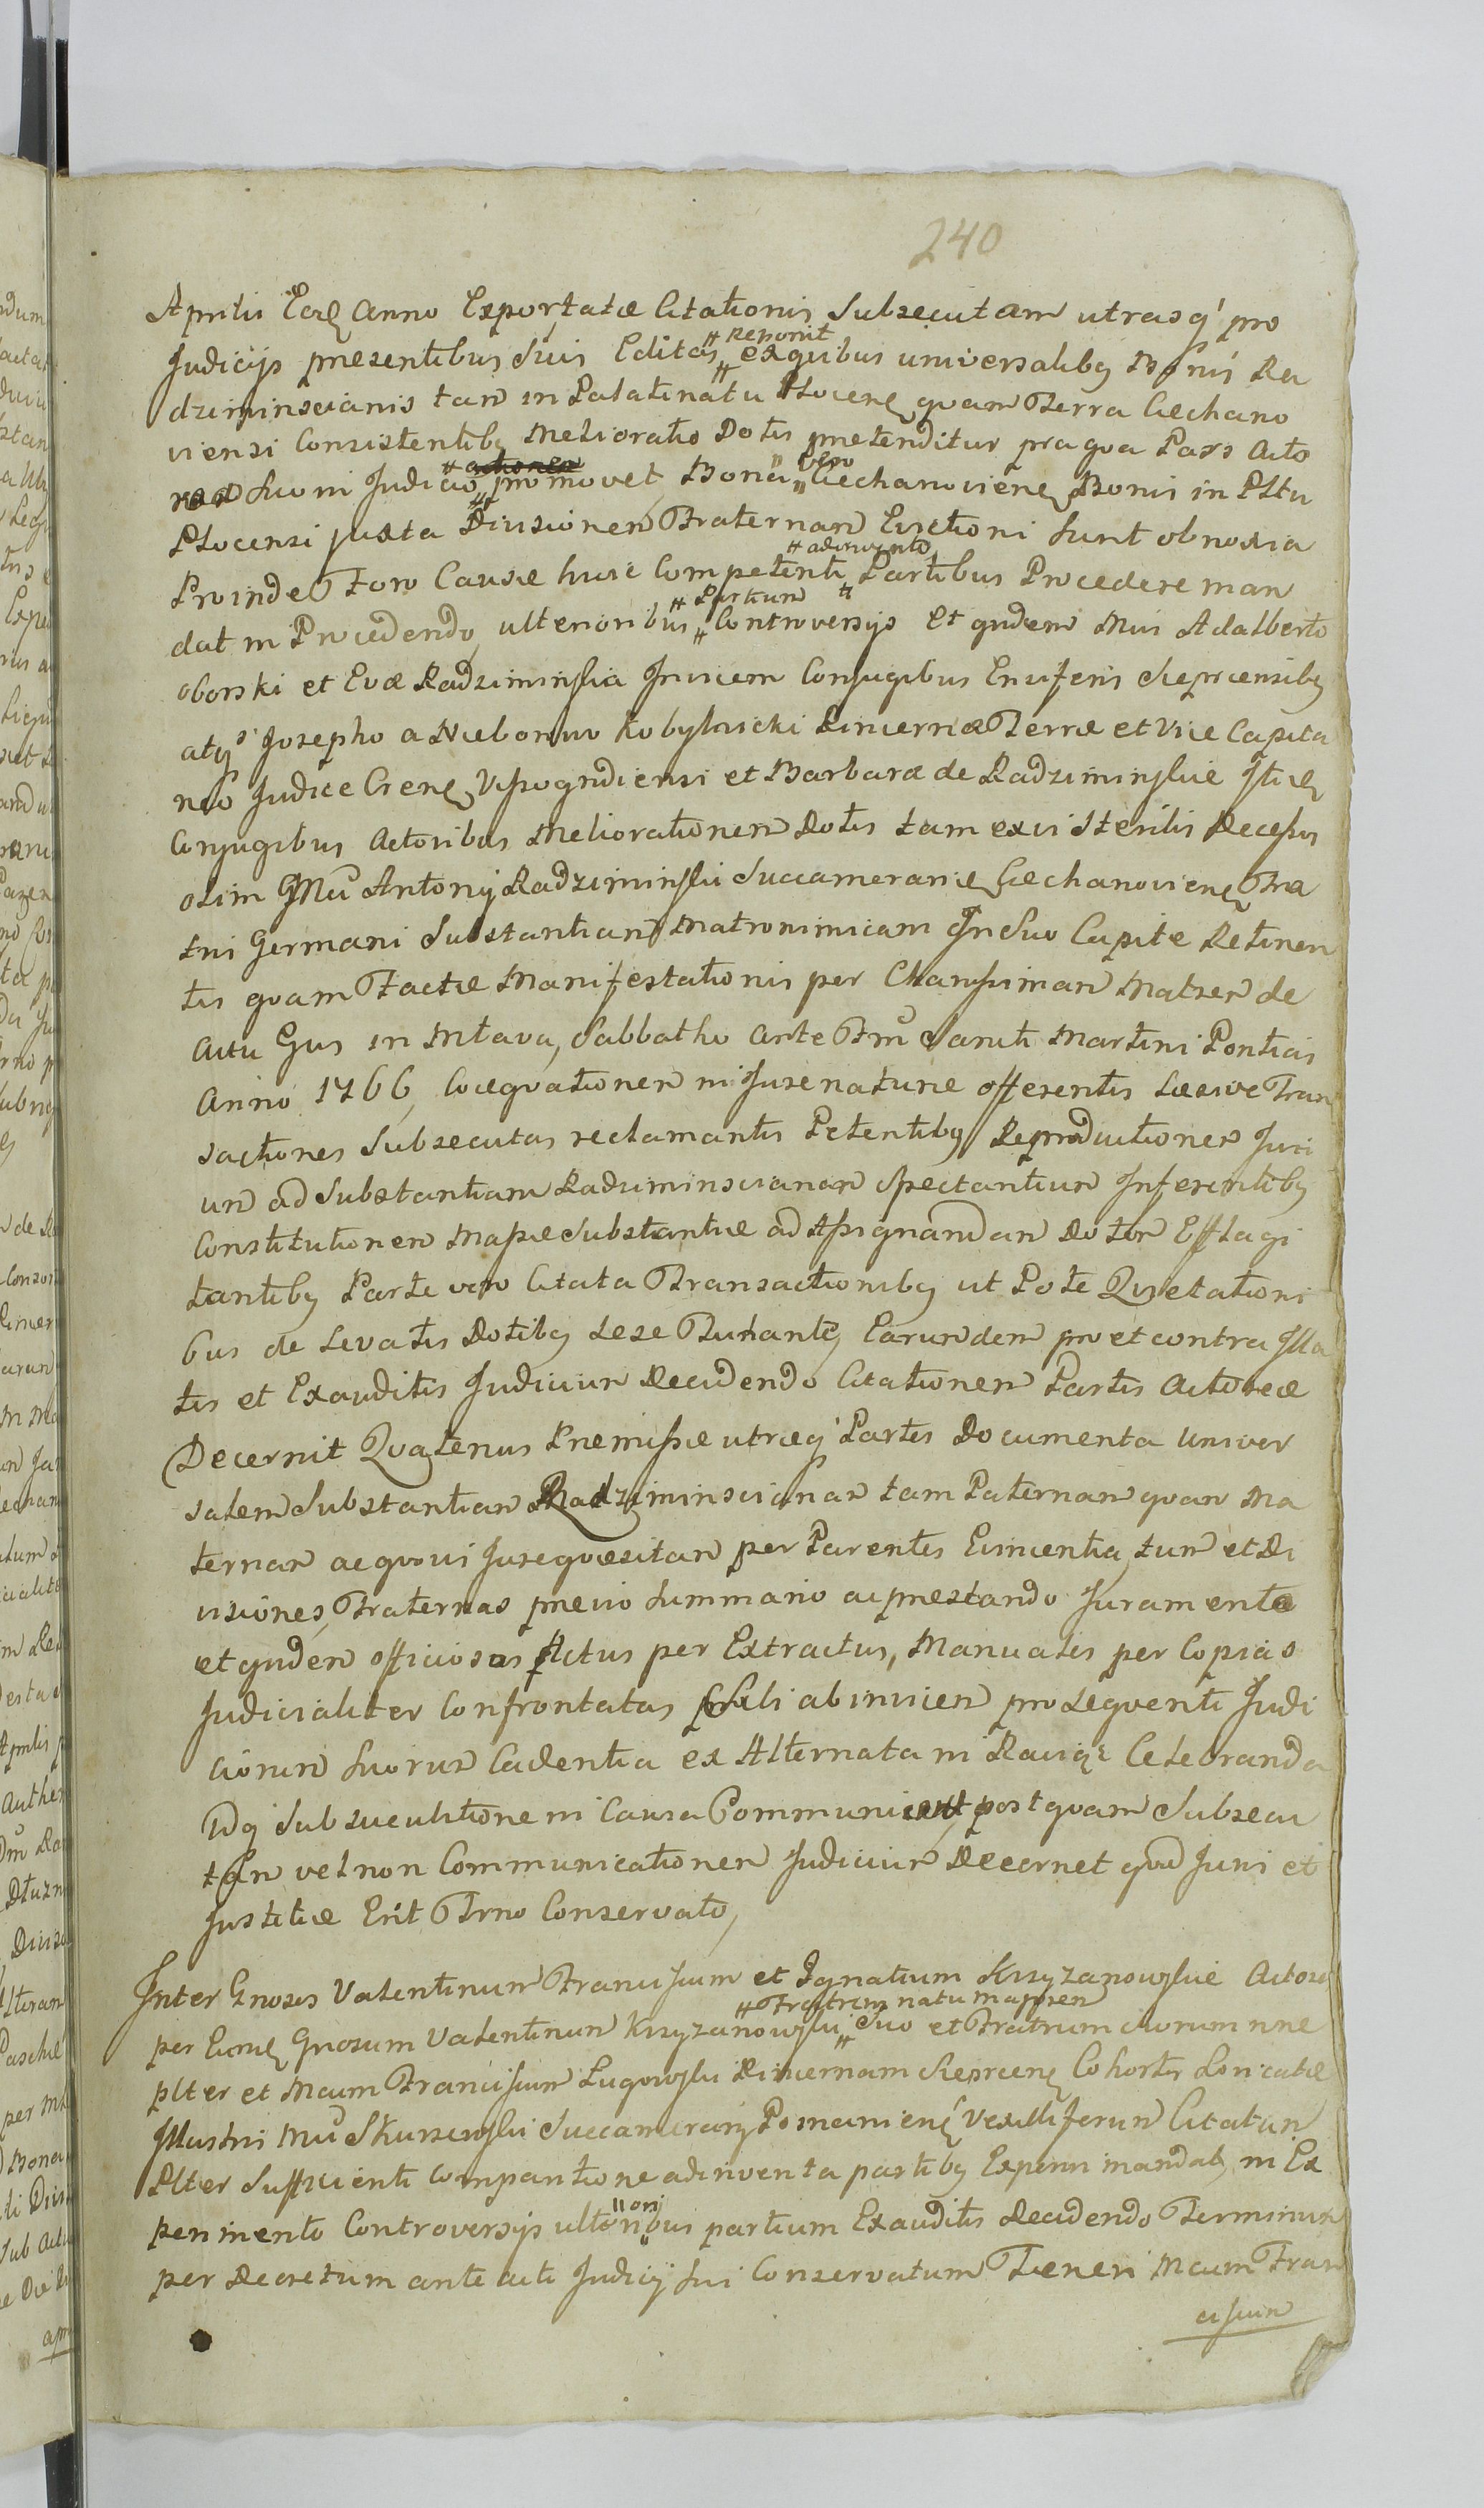 240
Aprilis Eod Anno Exportatæ Citationis Subsecutam utrasq' pro
Judicijs præsentibus Suis Editas # Reponit # exquibus universalibg Bonis Ra
dziminscianis tam in Palatinatu Plocens quam Terra Ciechano
viensi Consistentibg Melioratio Dotis prætenditur pro qua Pars Acto
rea Suo in Judicio promovet, Bona vero Ciechanoviens Bonis in Pltu
Plocensi juxta Divisionem Fraternam Evictioni sunt obnoxia
Proinde Foro Causæ huic Competenti # adinvento # Partibus Procedere man
dat in Procedendo, ulterioribus # Partium # Controversijs Et quidem Mcis Adalberto
Oborski et Eva Radziminska Invicem Conjugibus Ensiferis Sieprcensibg
atq' Josepho a Niebonwo Kobylnicki Pincerna Terræ et Vice Capita
neo Judice Crens Vissogrodiensi et Barbara de Radziminskie Itid
Conjugibus Actoribus Meliorationem Dotis tam ex vi Sterilis Decessus
olim GMci Antonij Radziminski Succamerarij Ciechanoviens Fra
tris Germani Substantiam Matronimicam In Suo Capite Retinen
tis quam Factæ Manifestationis per Charissimam Matrem de
Actu Gus in Mlava, Sabbatho Ante Ftm Sancti Martini Pontcis
Anno 1766, Coæquationem in Jure naturæ offerentis Læsive Tran
sactiones Subsecutas reclamantis Petentibg Reproductionem Juri
um ad Substantiam Radziminscianam Spectantium Inferentibg
Constitutionem Massæ Substantiæ ad Assignandam Dotem Efflagi
tantibg Parte vero Citata Transactionibg ut Pote Quietationi
bus de Levatis Dotibg Sese Tutante, Earundem pro et contra Illa
tis et Exauditis Judicium Decidendo Citationem Partis Actoreæ
Decernit Quatenus Præmissæ utræq' Partes Documenta Univer
salem Substantiam Radziminscianam tam Paternam quam Ma
ternam æquovi Jure quæsitam per Parentes Evincentia, tum et Di
visiones, Fraternas prævio Summario ac præstando Juramento
et quidem officiosos Actus per Extractus, Manuales per Copias
Judicialiter Confrontatas Soli ab invicem pro Sequenti Judi
ciorum Suorum Cadentia ex Alternata in Raciąż Celebranda
Idq Sub Succubitione in Causa Communicent, postquam Subsecu
tam vel non Communicationem Judicium Decernet quod Juri et
Justitiæ Erit Trno Conservato,
Inter Gnosos Valentinum Franciscum et Ignatium Krzyzanowskie Actores
per Eund Gnosum Valentinum Krzyzanowski # Fratrem natu majorem # Suo et Fratrum Suorum nne
plter et Mcum Franciscum Lugowski Pincernam Sieprcens Cohortis Loricatæ
Illustris Mci Skurzewski Succamerarij Posnaniens Vexilliferum Citatum
Plter Sufficienti Comparitione adinventa partibg Experiri mandat, in Ex
perimento Controversijs ulterioribus partium Exauditis Decidendo Terminum
per Decretum anteacti Judicij Sui Conservatum Teneri Mcum Fran
ciscum